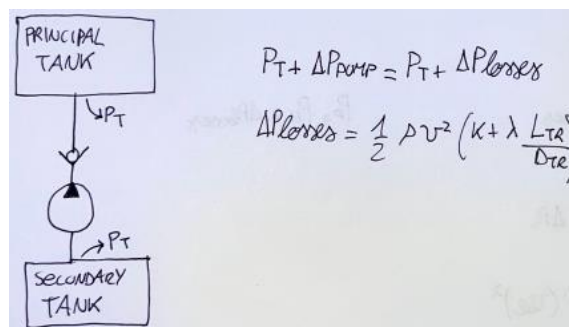 PRINCIPAL
TANK
P_T
P_T
SECONDARY
TANK
P_T + ΔP_PUMP = P_T + ΔP_losses
ΔP_losses = 1/2 ρ v² (K + λ L_TR/D_TR